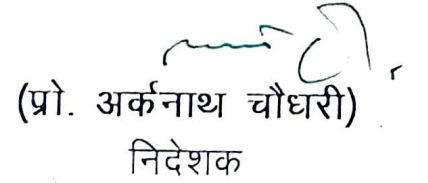 (प्रो. अर्कनाथ चौधरी)
निदेशक